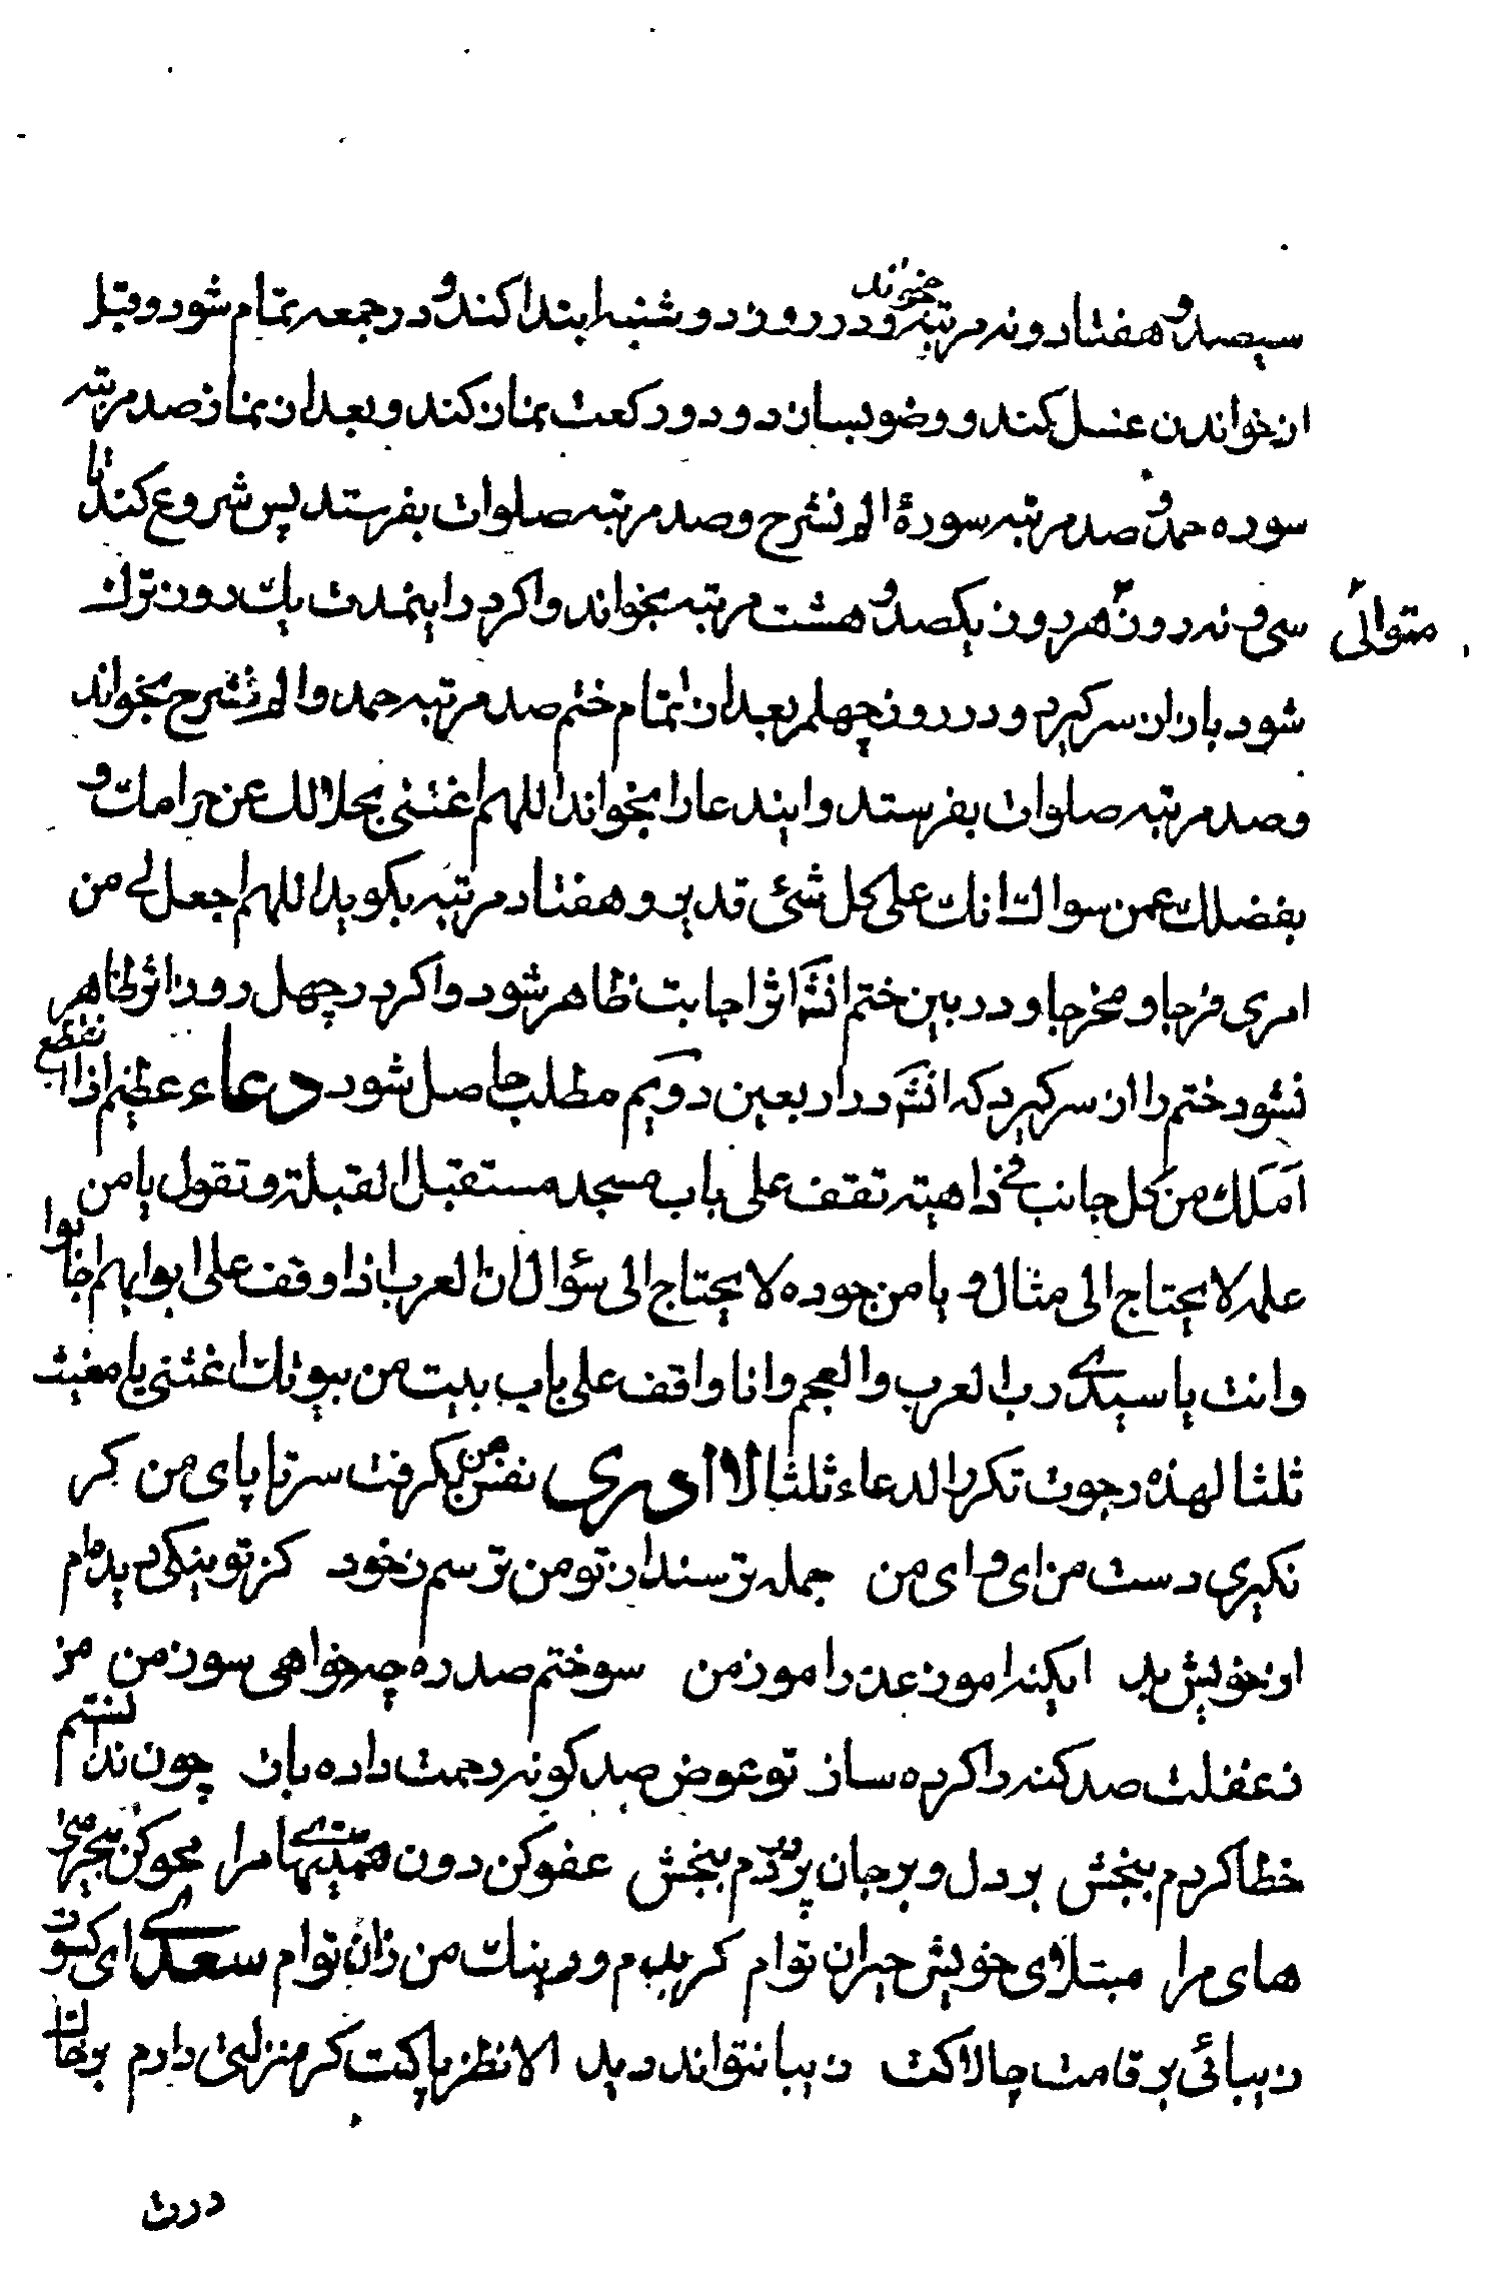 سیصد و هفتاد و نه مرتبه بخواند و در روز دوشنبه ابتدا کند و در جمعه تمام شود و قبل
از خواندن غسل کند و وضو بسازد و دو رکعت نماز کند و بعد از نماز صد مرتبه
سوره حمد و صد مرتبه سورهٔ الم نشرح و صد مرتبه صلوات بفرستد پس شروع کند تا
سی و نه روز هر روز یکصد و هشت مرتبه بخواند و اگر در اینمدت یک روز ترک
متوالی
شود باز از سر گیرد و در روز چهلم بعد از اتمام ختم صد مرتبه حمد و الم نشرح بخواند
و صد مرتبه صلوات بفرستد و ایندعا را بخواند اللهم اغننی بحلالک عن حرامک و
بفضلک عمن سواک انک علی کل شئ قدیر و هفتاد مرتبه بگوید اللهم اجعل لی من
امری فرجا و مخرجا و در بین ختم انشا اثر اجابت ظاهر شود و اگر در چهل روز اثر ظاهر
نشود ختم را از سر گیرد که انش در اربعین دویم مطلب حاصل شود دعاء عظیم اذا انقطع
املک من کل جانب ذاهبته تقف علی باب مسجد مستقبل القبلة و تقول یا من
علمه لا یحتاج الی مثال و یا من جوده لا یحتاج الی سؤال ان العرب اذا وقف علی ابوابهم اجابوا
و انت یا سیدی رب العرب و العجم و انا واقف علی باب بیت من بیوتک اغثنی یا مغیث
ثلثا لهذه رجوت تکرر الدعاء ثلثا لا ادری نفس من بگرفت سر تا پای من گر
نگیری دست من ای وای من جمله ترسند از تو من ترسم ز خود کز تو نیکی دیده‌ام
از خویش بد ایگنه آموز عذر آموز من سوختم صد ره چه خواهی سوز من من
ز غفلت صد گنه را کرده ساز تو عوض صد گونه رحمت داده باز چون ندانستم
خطا کردم ببخش بر دل و بر جان پر دردم ببخش عفو کن دون همتیهای مرا محو کن بیحرمتی
های مرا مبتلای خویش حیران توام گر بدم ور نیک من زان توام سعدی ای کسوت
زیبائی بر قامت چالاکت زیبا نتواند دید الا نظر پاکت گر منزلتی دارم بر خاک
درت